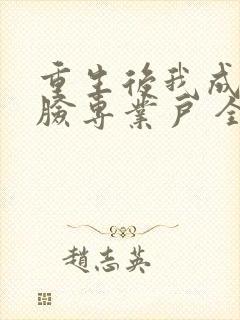 重生後我成
臉專業戶全
趙志英